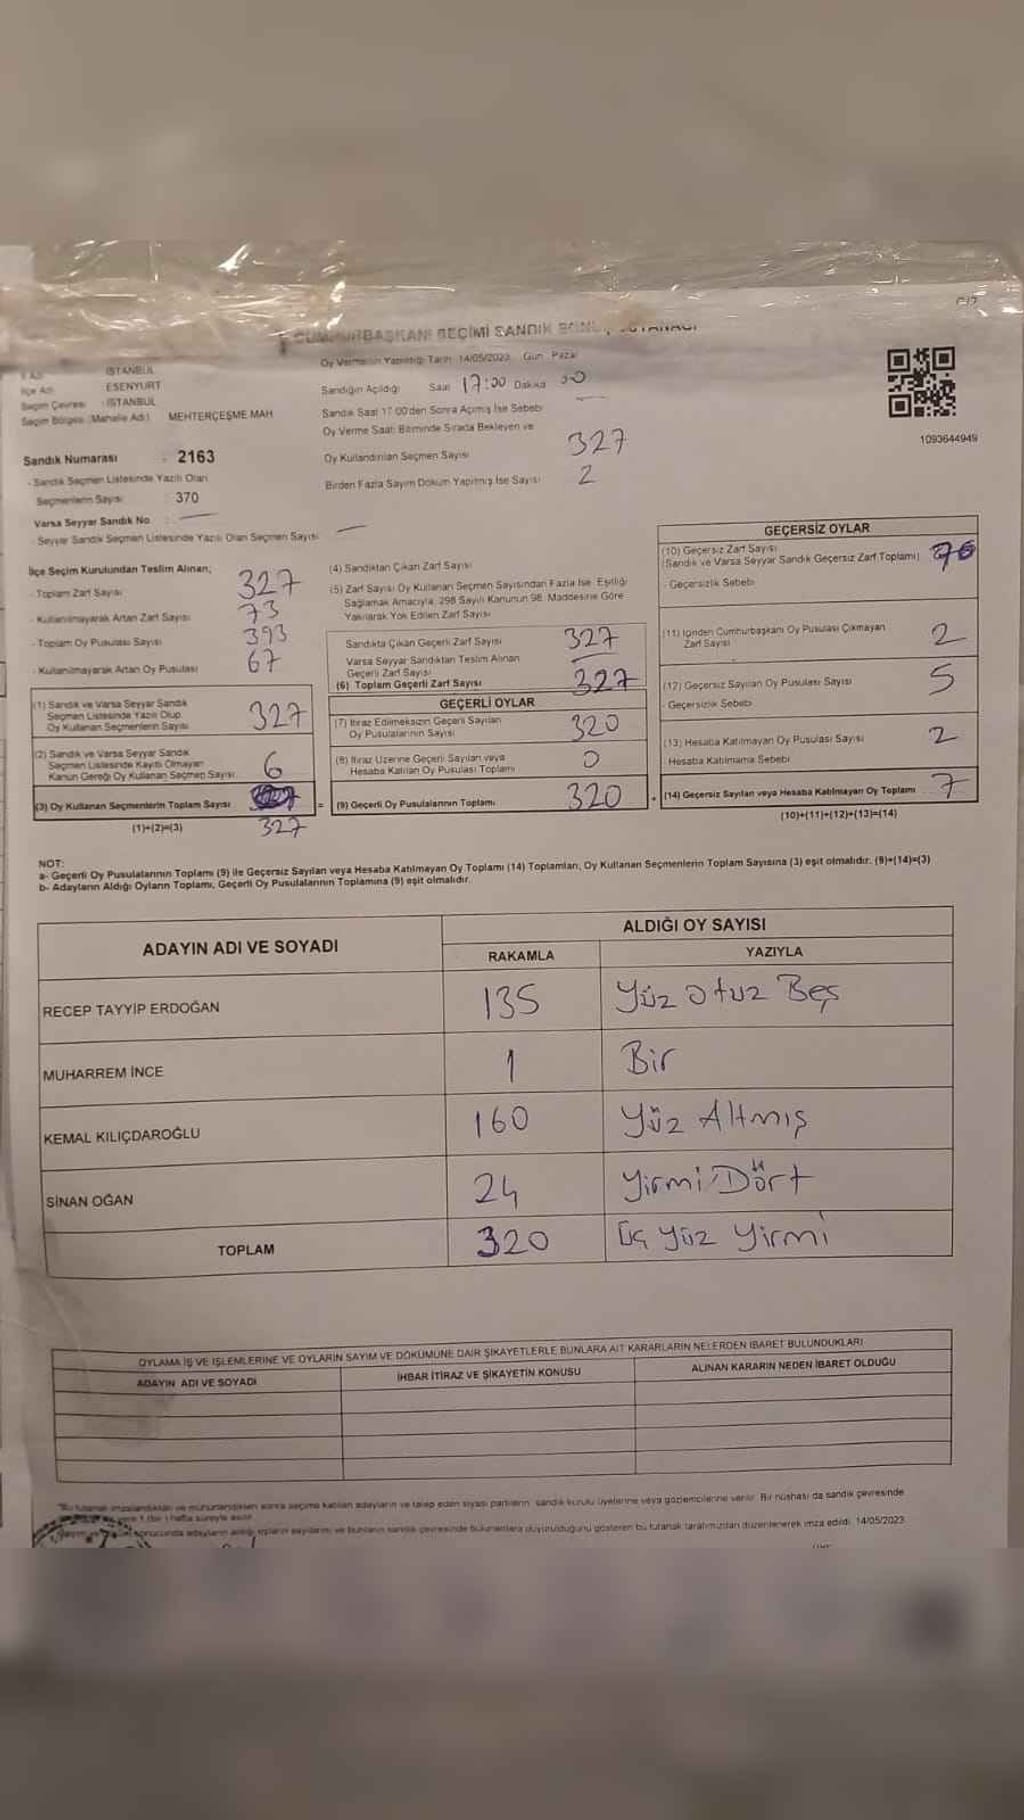 CUMHURBAŞKANI SEÇİMİ SANDIK
İSTANBUL
İlçe Adı ESENYURT
Seçim Çevresi : İSTANBUL
Seçim Bölgesi (Mahalle Adı) MEHTERÇEŞME MAH
Sandık Numarası : 2163
- Sandık Seçmen Listesinde Yazılı Olan
Seçmenlerin Sayısı 370
Varsa Seyyar Sandık No
- Seyyar Sandık Seçmen Listesinde Yazılı Olan Seçmen Sayısı
Oy Vermenin Yapıldığı Tarih 14/05/2023 Gün Pazar
Sandığın Açıldığı Saat 17:00 Dakika
Sandık Saat 17.00'den Sonra Açılmış İse Sebebi
Oy Verme Saati Bitiminde Sırada Bekleyen ve
Oy Kullandırılan Seçmen Sayısı 327
Birden Fazla Sayım Döküm Yapılmış İse Sayısı 2
1093644949
İlçe Seçim Kurulundan Teslim Alınan;
- Toplam Zarf Sayısı 327
- Kullanılmayarak Artan Zarf Sayısı 73
- Toplam Oy Pusulası Sayısı 393
- Kullanılmayarak Artan Oy Pusulası 67
(1) Sandık ve Varsa Seyyar Sandık
Seçmen Listesinde Yazılı Olup
Oy Kullanan Seçmenlerin Sayısı 327
(2) Sandık ve Varsa Seyyar Sandık
Seçmen Listesinde Kayıtlı Olmayan
Kanun Gereği Oy Kullanan Seçmen Sayısı 6
(3) Oy Kullanan Seçmenlerin Toplam Sayısı
(1)+(2)=(3) 327
(4) Sandıktan Çıkan Zarf Sayısı
(5) Zarf Sayısı Oy Kullanan Seçmen Sayısından Fazla İse, Eşitliği
Sağlamak Amacıyla, 298 Sayılı Kanunun 98. Maddesine Göre
Yakılarak Yok Edilen Zarf Sayısı
Sandıkta Çıkan Geçerli Zarf Sayısı 327
Varsa Seyyar Sandıktan Teslim Alınan
Geçerli Zarf Sayısı
(6) Toplam Geçerli Zarf Sayısı 327
GEÇERLİ OYLAR
(7) İtiraz Edilmeksizin Geçerli Sayılan
Oy Pusulalarının Sayısı 320
(8) İtiraz Üzerine Geçerli Sayılan veya
Hesaba Katılan Oy Pusulası Toplamı 0
= (9) Geçerli Oy Pusulalarının Toplamı 320
GEÇERSİZ OYLAR
(10) Geçersiz Zarf Sayısı
(Sandık ve Varsa Seyyar Sandık Geçersiz Zarf Toplamı)
- Geçersizlik Sebebi
(11) İçinden Cumhurbaşkanı Oy Pusulası Çıkmayan
Zarf Sayısı 2
(12) Geçersiz Sayılan Oy Pusulası Sayısı 5
- Geçersizlik Sebebi
(13) Hesaba Katılmayan Oy Pusulası Sayısı 2
Hesaba Katılmama Sebebi
+ (14) Geçersiz Sayılan veya Hesaba Katılmayan Oy Toplamı 7
(10)+(11)+(12)+(13)=(14)
NOT:
a- Geçerli Oy Pusulalarının Toplamı (9) ile Geçersiz Sayılan veya Hesaba Katılmayan Oy Toplamı (14) Toplamları, Oy Kullanan Seçmenlerin Toplam Sayısına (3) eşit olmalıdır. (9)+(14)=(3)
b- Adayların Aldığı Oyların Toplamı, Geçerli Oy Pusulalarının Toplamına (9) eşit olmalıdır.
ADAYIN ADI VE SOYADI
ALDIĞI OY SAYISI
RAKAMLA YAZIYLA
RECEP TAYYİP ERDOĞAN 135 Yüz Otuz Beş
MUHARREM İNCE 1 Bir
KEMAL KILIÇDAROĞLU 160 Yüz Altmış
SİNAN OĞAN 24 Yirmi Dört
TOPLAM 320 Üç Yüz Yirmi
OYLAMA İŞ VE İŞLEMLERİNE VE OYLARIN SAYIM VE DÖKÜMÜNE DAİR ŞİKAYETLERLE BUNLARA AİT KARARLARIN NELERDEN İBARET BULUNDUKLARI
ADAYIN ADI VE SOYADI İHBAR İTİRAZ VE ŞİKAYETİN KONUSU ALINAN KARARIN NEDEN İBARET OLDUĞU
imzalandıktan ve mühürlendikten sonra seçime katılan adayların ve talep eden siyasi partilerin sandık kurulu üyelerine veya gözlemcilerine verilir. Bir nüshası da sandık çevresinde
1 (bir) hafta süreyle asılır.
sonucunda adayların aldığı oyların sayılarını ve bunların sandık çevresinde bulunanlara duyurulduğunu gösteren bu tutanak tarafımızdan düzenlenerek imza edildi. 14/05/2023